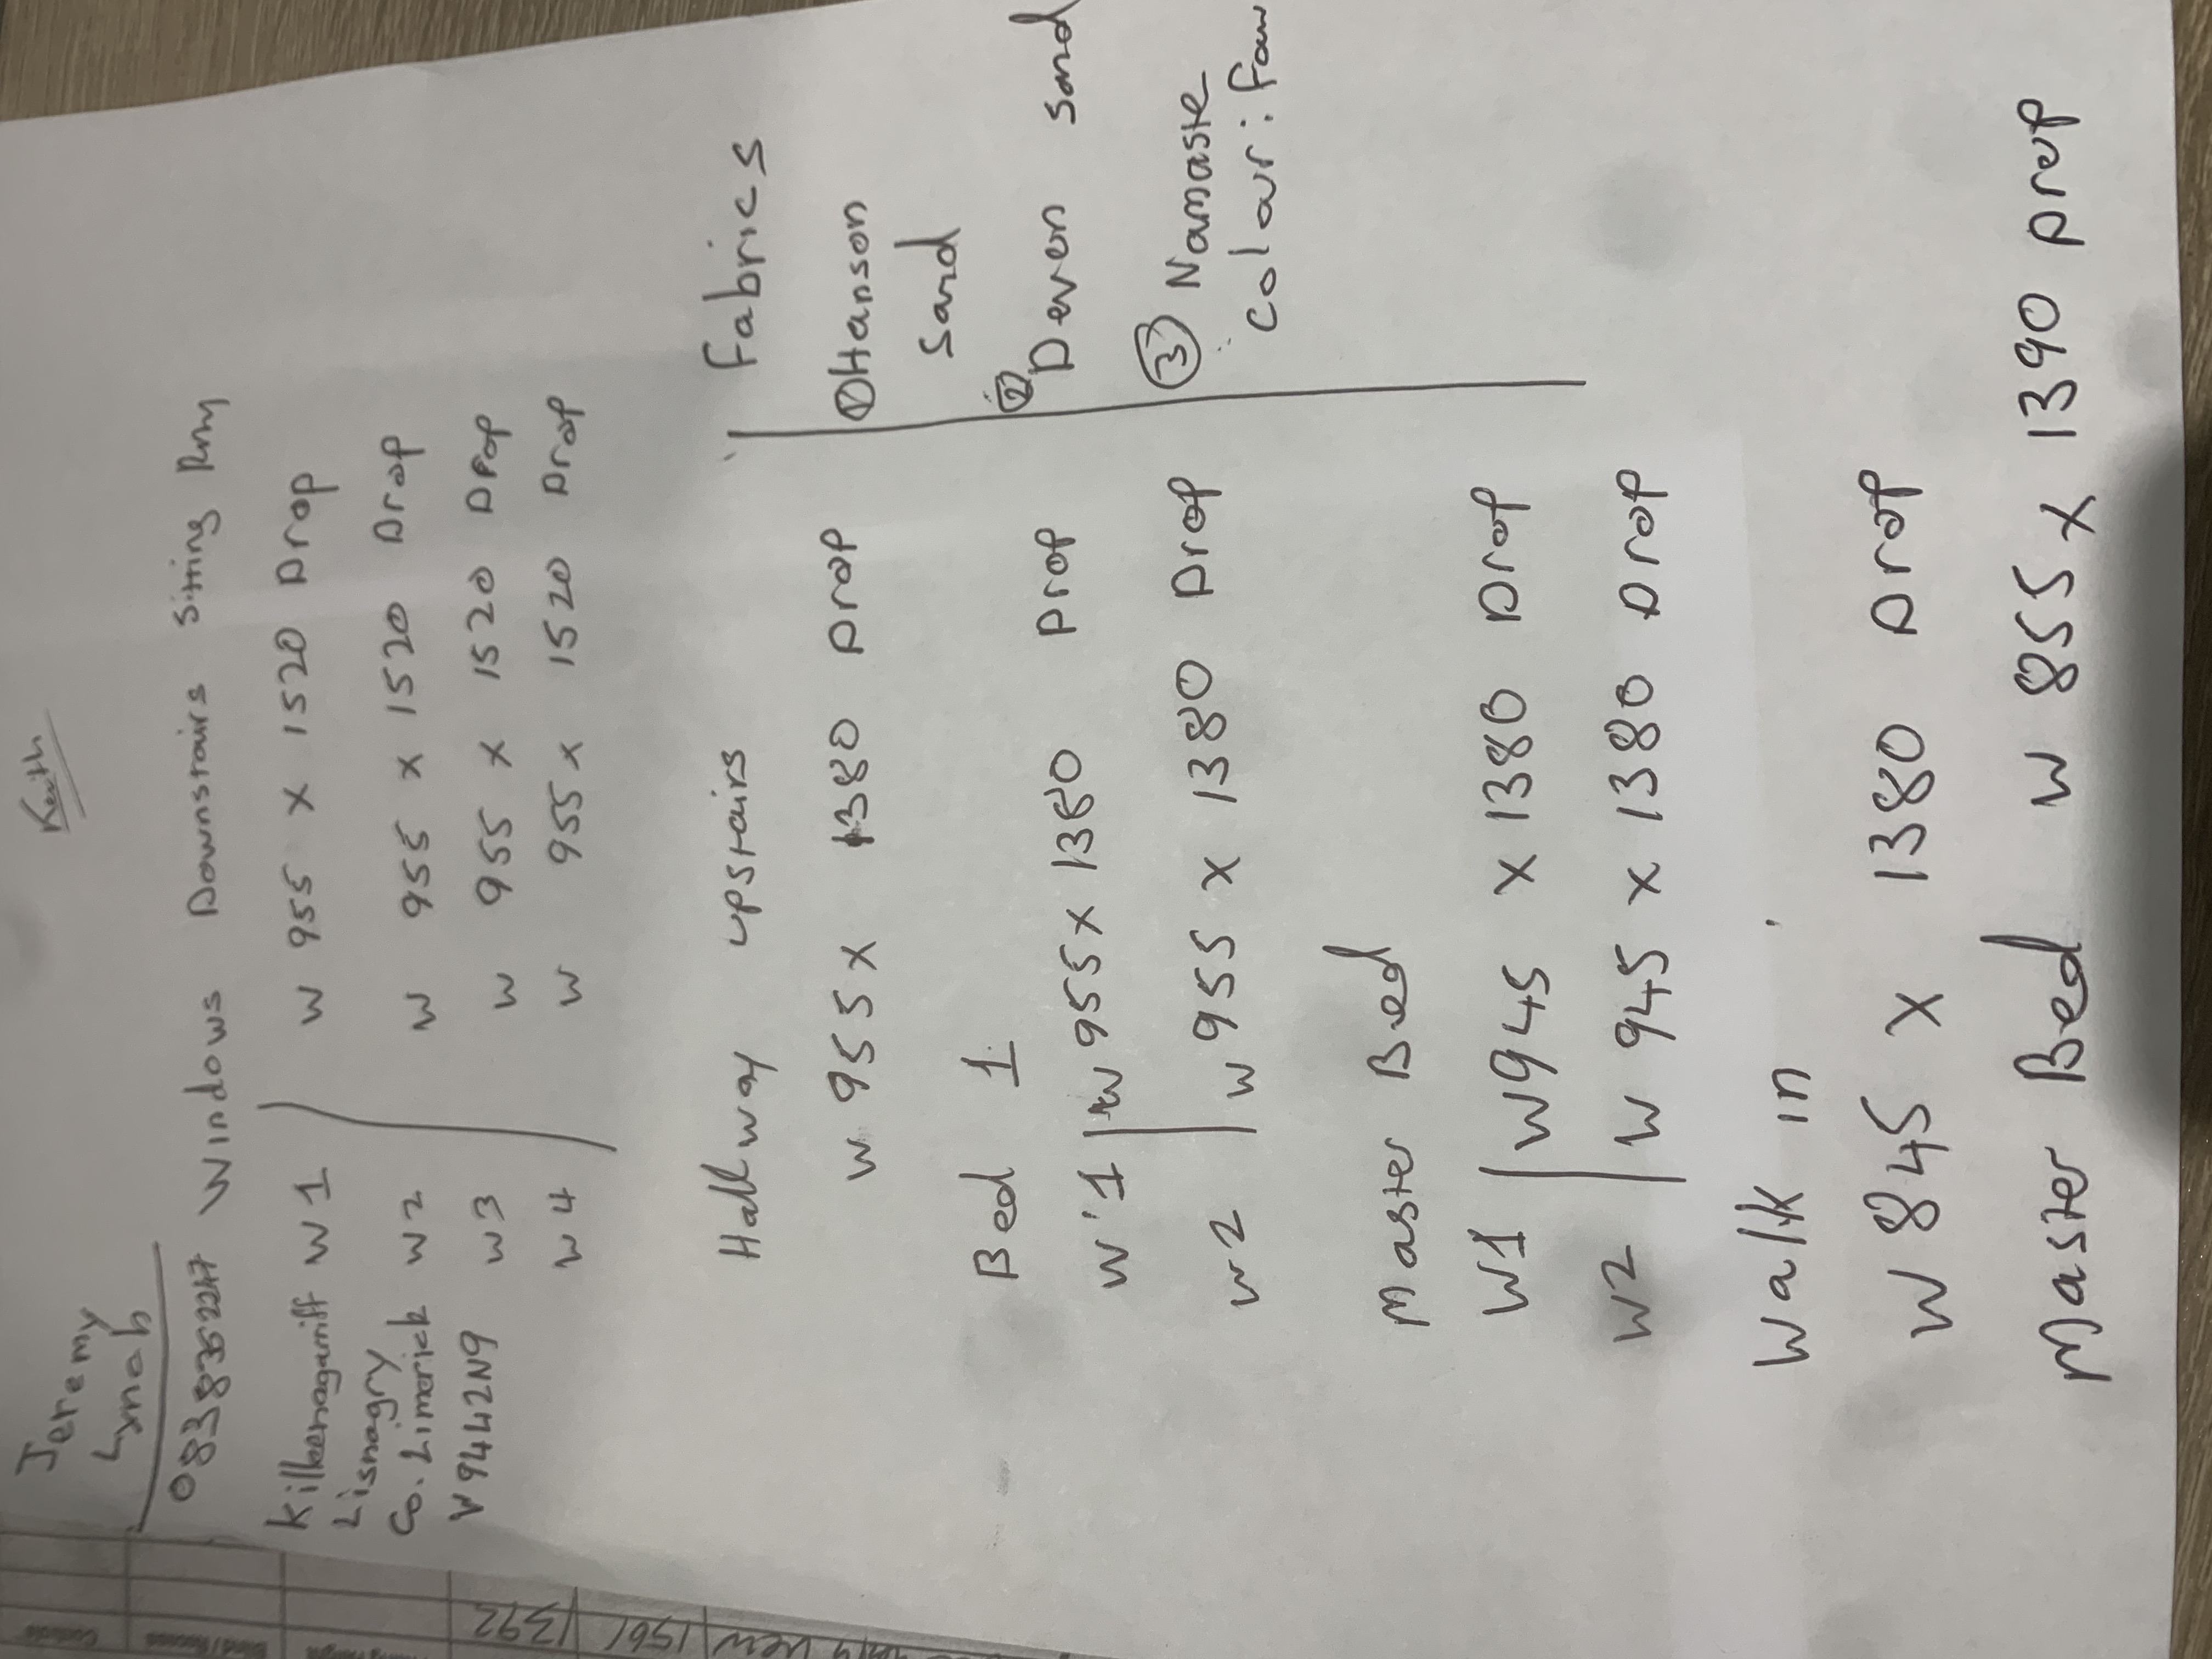 Keith
Jeremy
Lynah
0838352247 Windows Downstairs Sitting Rm
Kilbernagariff W1 W 955 x 1520 Drop
Lisnagry
Co. Limerick W2 W 955 x 1520 Drop
V9442N9 W3 W 955 x 1520 Drop
W4 W 955 x 1520 Drop
Hallway upstairs
W 955 x 1380 Drop
Bed 1
W1 W 955 x 1380 Drop
W2 W 955 x 1380 Drop
Master Bed
W1 W945 x 1380 Drop
W2 W 945 x 1380 Drop
Walk in
W 845 x 1380 Drop
Master Bed W 855 x 1390 Drop
Fabrics
① Hanson
Sand
② Deven Sand
③ Namaste
Colour: Faw
1561 1392